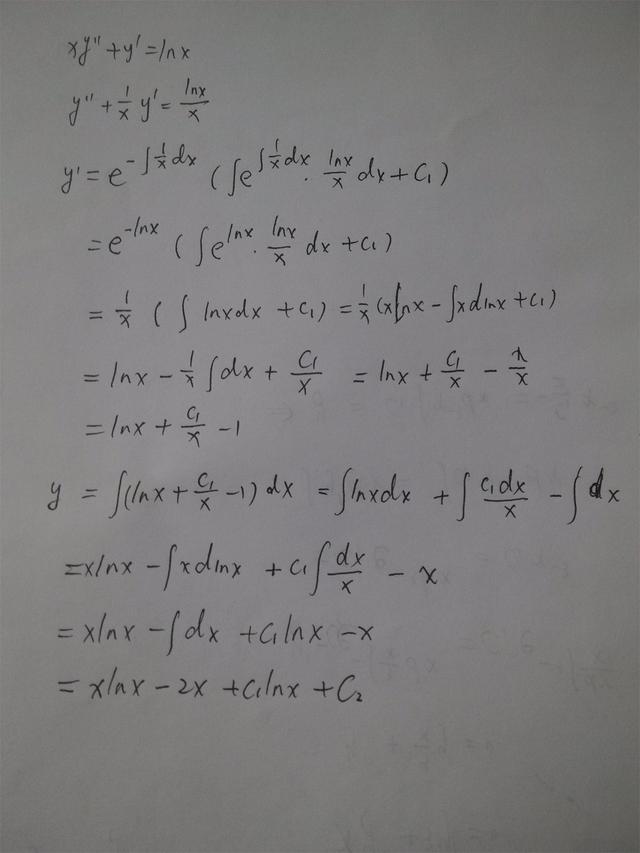 xy''+y'=lnx
y''+\frac{1}{x}y'=\frac{lnx}{x}
y'=e^{-∫\frac{1}{x}dx}(∫e^{∫\frac{1}{x}dx}·\frac{lnx}{x}dx+C₁)
=e^{-lnx}(∫e^{lnx}·\frac{lnx}{x}dx+C₁)
=\frac{1}{x}(∫lnxdx+C₁)=\frac{1}{x}(xlnx-∫xdlnx+C₁)
=lnx-\frac{1}{x}∫dx+\frac{C₁}{x}=lnx+\frac{C₁}{x}-\frac{x}{x}
=lnx+\frac{C₁}{x}-1
y=∫(lnx+\frac{C₁}{x}-1)dx=∫lnxdx+∫\frac{C₁dx}{x}-∫dx
=xlnx-∫xdlnx+C₁∫\frac{dx}{x}-x
=xlnx-∫dx+C₁lnx-x
=xlnx-2x+C₁lnx+C₂